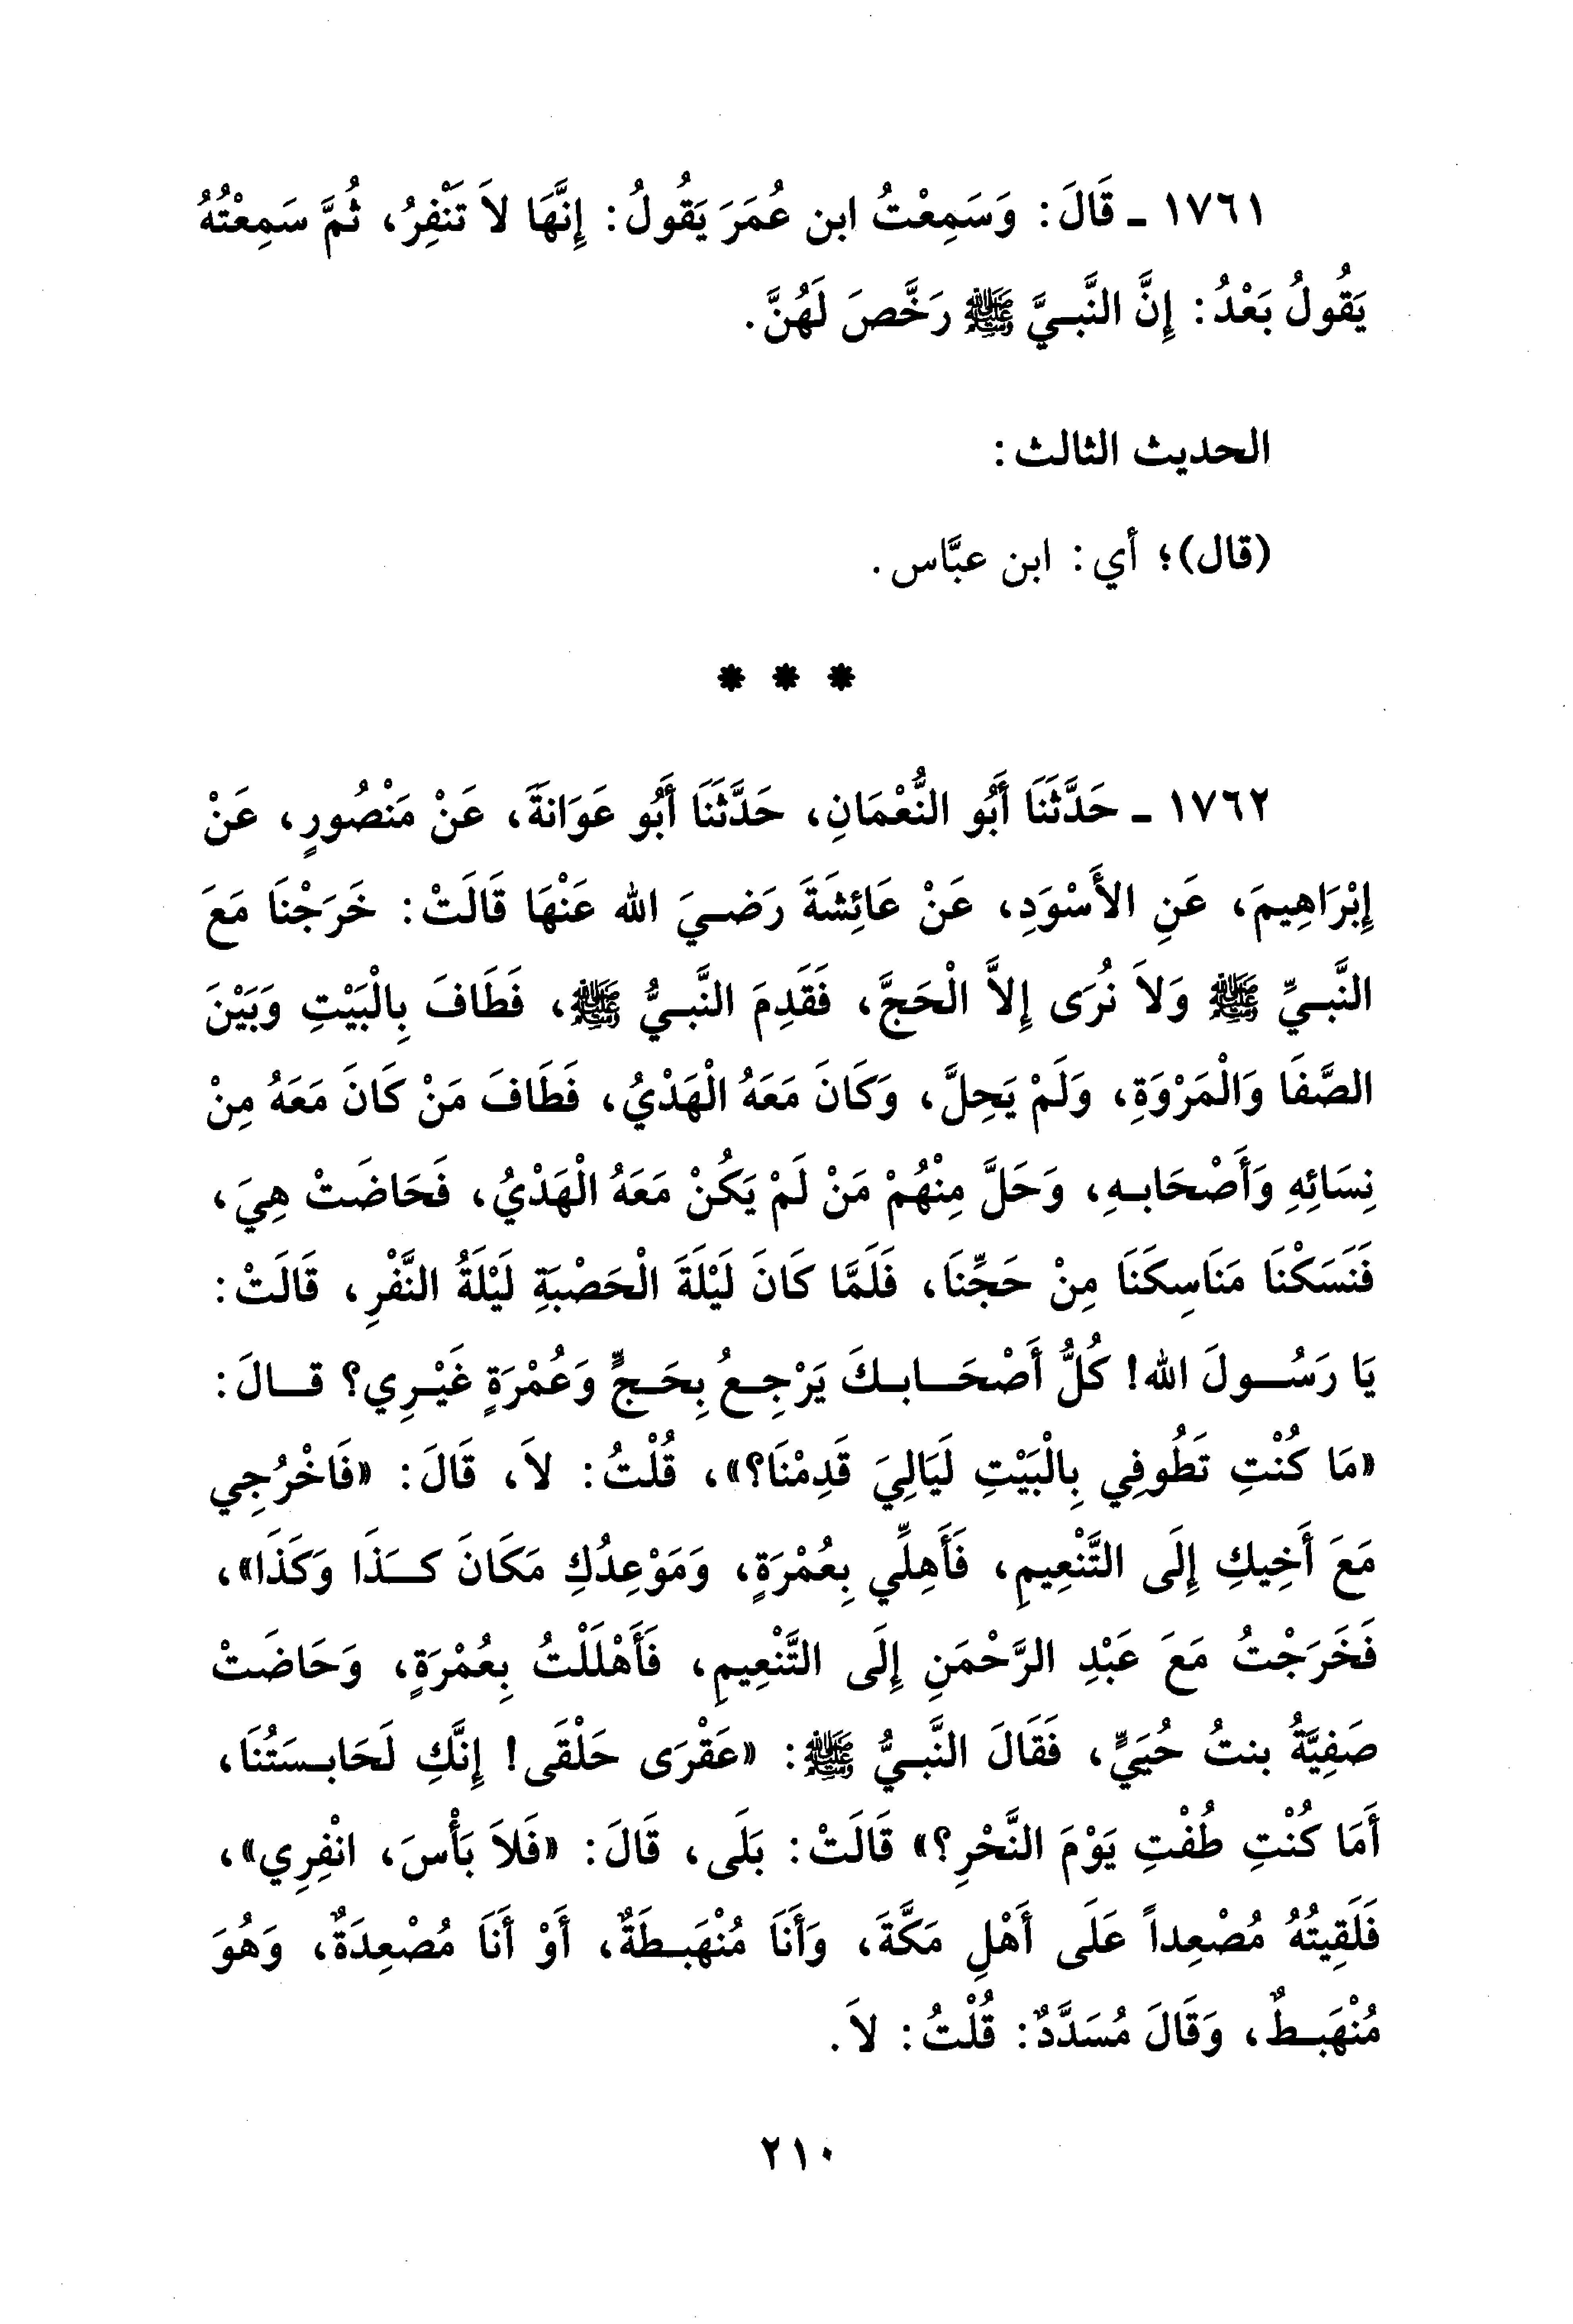 ١٧٦١ ـ قَالَ: وَسَمِعْتُ ابن عُمَرَ يَقُولُ: إِنَّهَا لاَ تَنْفِرُ، ثُمَّ سَمِعْتُهُ
يَقُولُ بَعْدُ: إِنَّ النَّبِيَّ ﷺ رَخَّصَ لَهُنَّ.
الحديث الثالث:
(قال)؛ أي: ابن عبَّاس.
* * *
١٧٦٢ ـ حَدَّثَنَا أَبُو النُّعْمَانِ، حَدَّثَنَا أَبُو عَوَانَةَ، عَنْ مَنْصُورٍ، عَنْ
إِبْرَاهِيمَ، عَنِ الأَسْوَدِ، عَنْ عَائِشَةَ رَضيَ الله عَنْهَا قَالَتْ: خَرَجْنَا مَعَ
النَّبيِّ ﷺ وَلاَ نُرَى إِلاَّ الْحَجَّ، فَقَدِمَ النَّبيُّ ﷺ، فَطَافَ بِالْبَيْتِ وَبَيْنَ
الصَّفَا وَالْمَرْوَةِ، وَلَمْ يَحِلَّ، وَكَانَ مَعَهُ الْهَدْيُ، فَطَافَ مَنْ كَانَ مَعَهُ مِنْ
نِسَائِهِ وَأَصْحَابهِ، وَحَلَّ مِنْهُمْ مَنْ لَمْ يَكُنْ مَعَهُ الْهَدْيُ، فَحَاضَتْ هِيَ،
فَنَسَكْنَا مَنَاسِكَنَا مِنْ حَجِّنَا، فَلَمَّا كَانَ لَيْلَةَ الْحَصْبَةِ لَيْلَةُ النَّفْرِ، قَالَتْ:
يَا رَسُولَ الله! كُلُّ أَصْحَابكَ يَرْجِعُ بِحَجٍّ وَعُمْرَةٍ غَيْرِي؟ قالَ:
«مَا كُنْتِ تَطُوفِي بِالْبَيْتِ لَيَالِيَ قَدِمْنَا؟»، قُلْتُ: لاَ، قَالَ: «فَاخْرُجِي
مَعَ أَخِيكِ إِلَى التَّنْعِيمِ، فَأَهِلِّي بِعُمْرَةٍ، وَمَوْعِدُكِ مَكَانَ كَذَا وَكَذَا»،
فَخَرَجْتُ مَعَ عَبْدِ الرَّحْمَنِ إِلَى التَّنْعِيمِ، فَأَهْلَلْتُ بِعُمْرَةٍ، وَحَاضَتْ
صَفِيَّةُ بنتُ حُيَيٍّ، فَقَالَ النَّبيُّ ﷺ: «عَقْرَى حَلْقَى! إِنَّكِ لَحَابسَتُنَا،
أَمَا كُنْتِ طُفْتِ يَوْمَ النَّحْرِ؟» قَالَتْ: بَلَى، قَالَ: «فَلاَ بَأْسَ، انْفِرِي»،
فَلَقِيتُهُ مُصْعِداً عَلَى أَهْلِ مَكَّةَ، وَأَنَا مُنْهَبطَةٌ، أَوْ أَنَا مُصْعِدَةٌ، وَهُوَ
مُنْهَبطٌ، وَقَالَ مُسَدَّدٌ: قُلْتُ: لاَ.
٢١٠